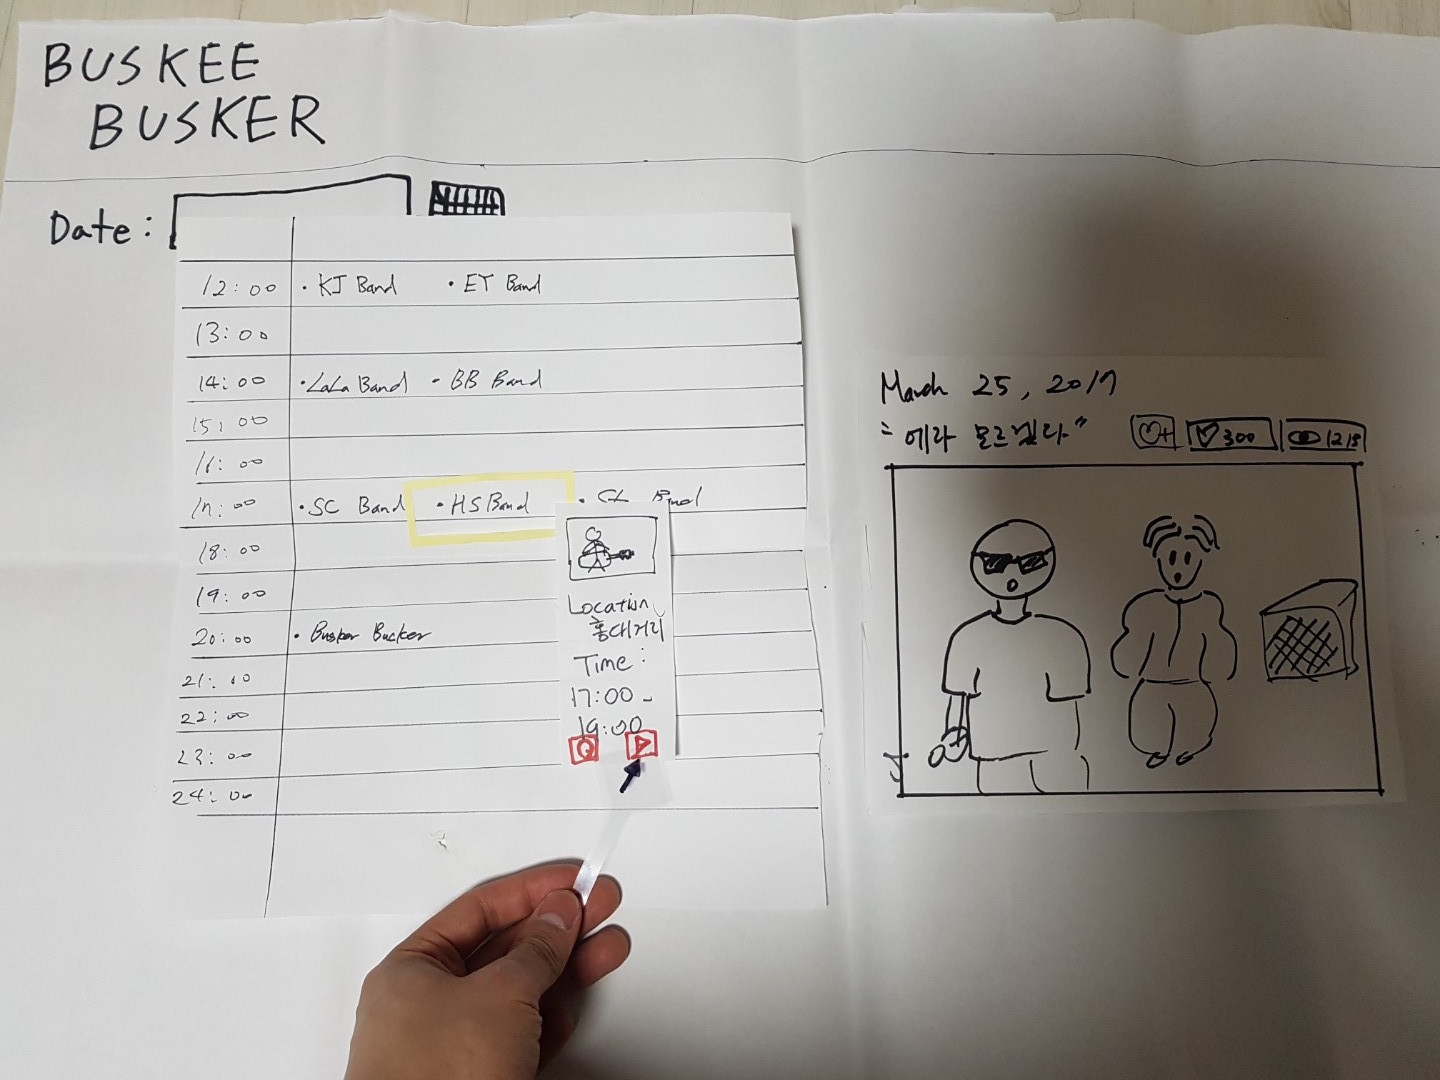 BUSKEE
BUSKER
Date :
12:00 • KJ Band • ET Band
13:00
14:00 • LaLa Band • BB Band
15:00
11:00
17:00 • SC Band • HS Band • Band
18:00
19:00
20:00 • Busker Bucker
21:00
22:00
23:00
24:00
Location
홍대거리
Time :
17:00 ~
19:00
March 25, 2017
"에라 모르겠다"
+ 300 1215